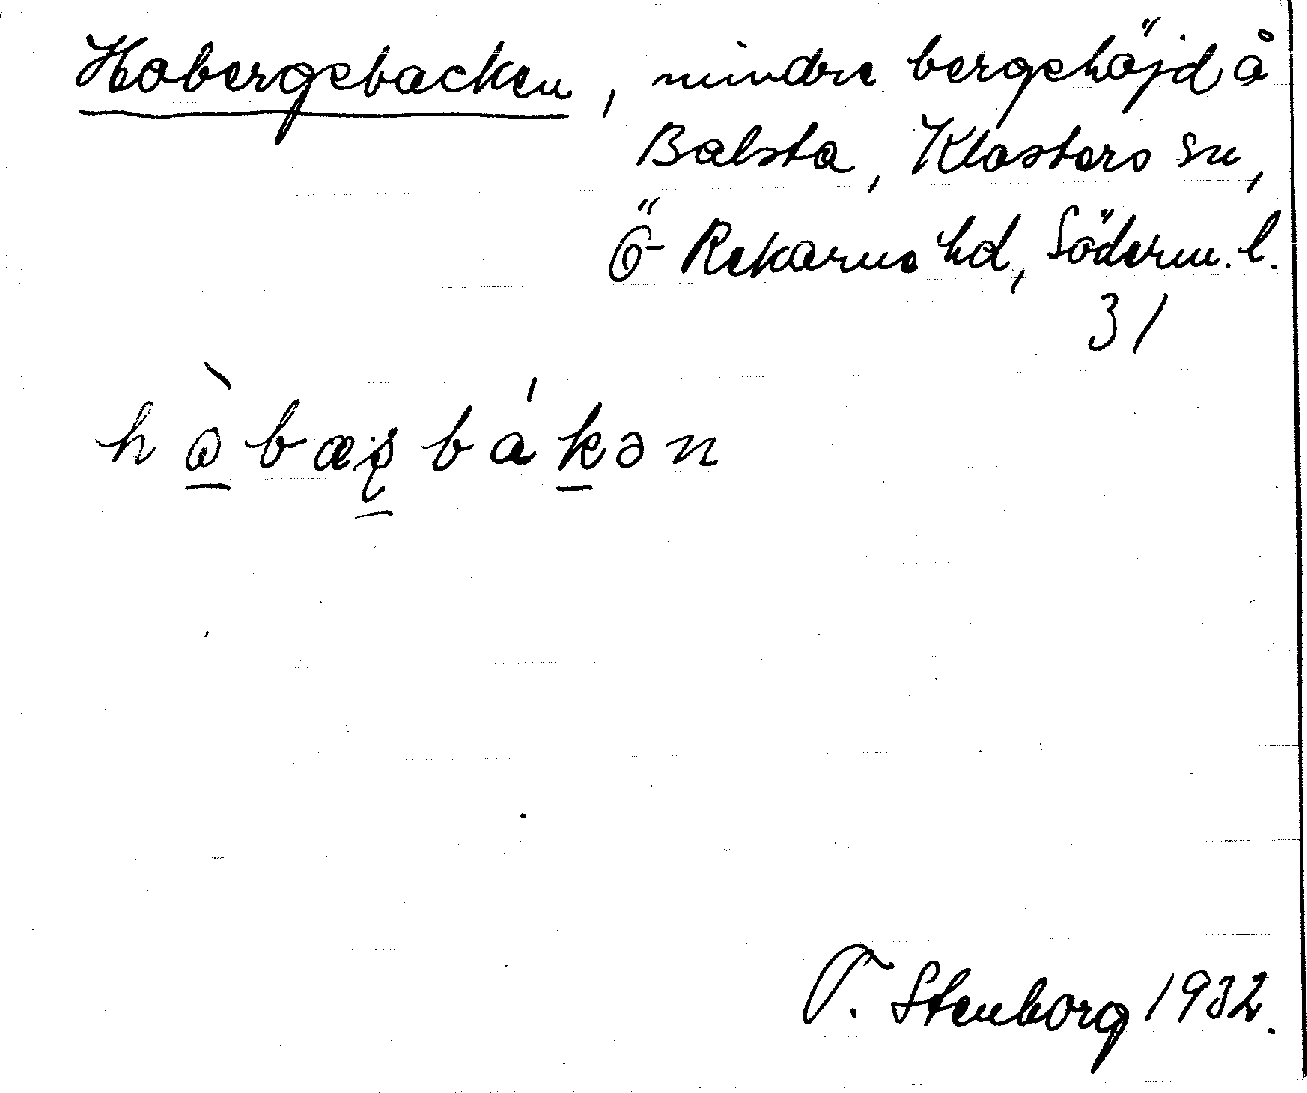 Hobergsbacken, mindre bergshöjd å
Balsta, Klosters sn,
Ö Rekarne hd, Söderm. l.
31
hὼbæʂbákən
T. Stenborg 1932.